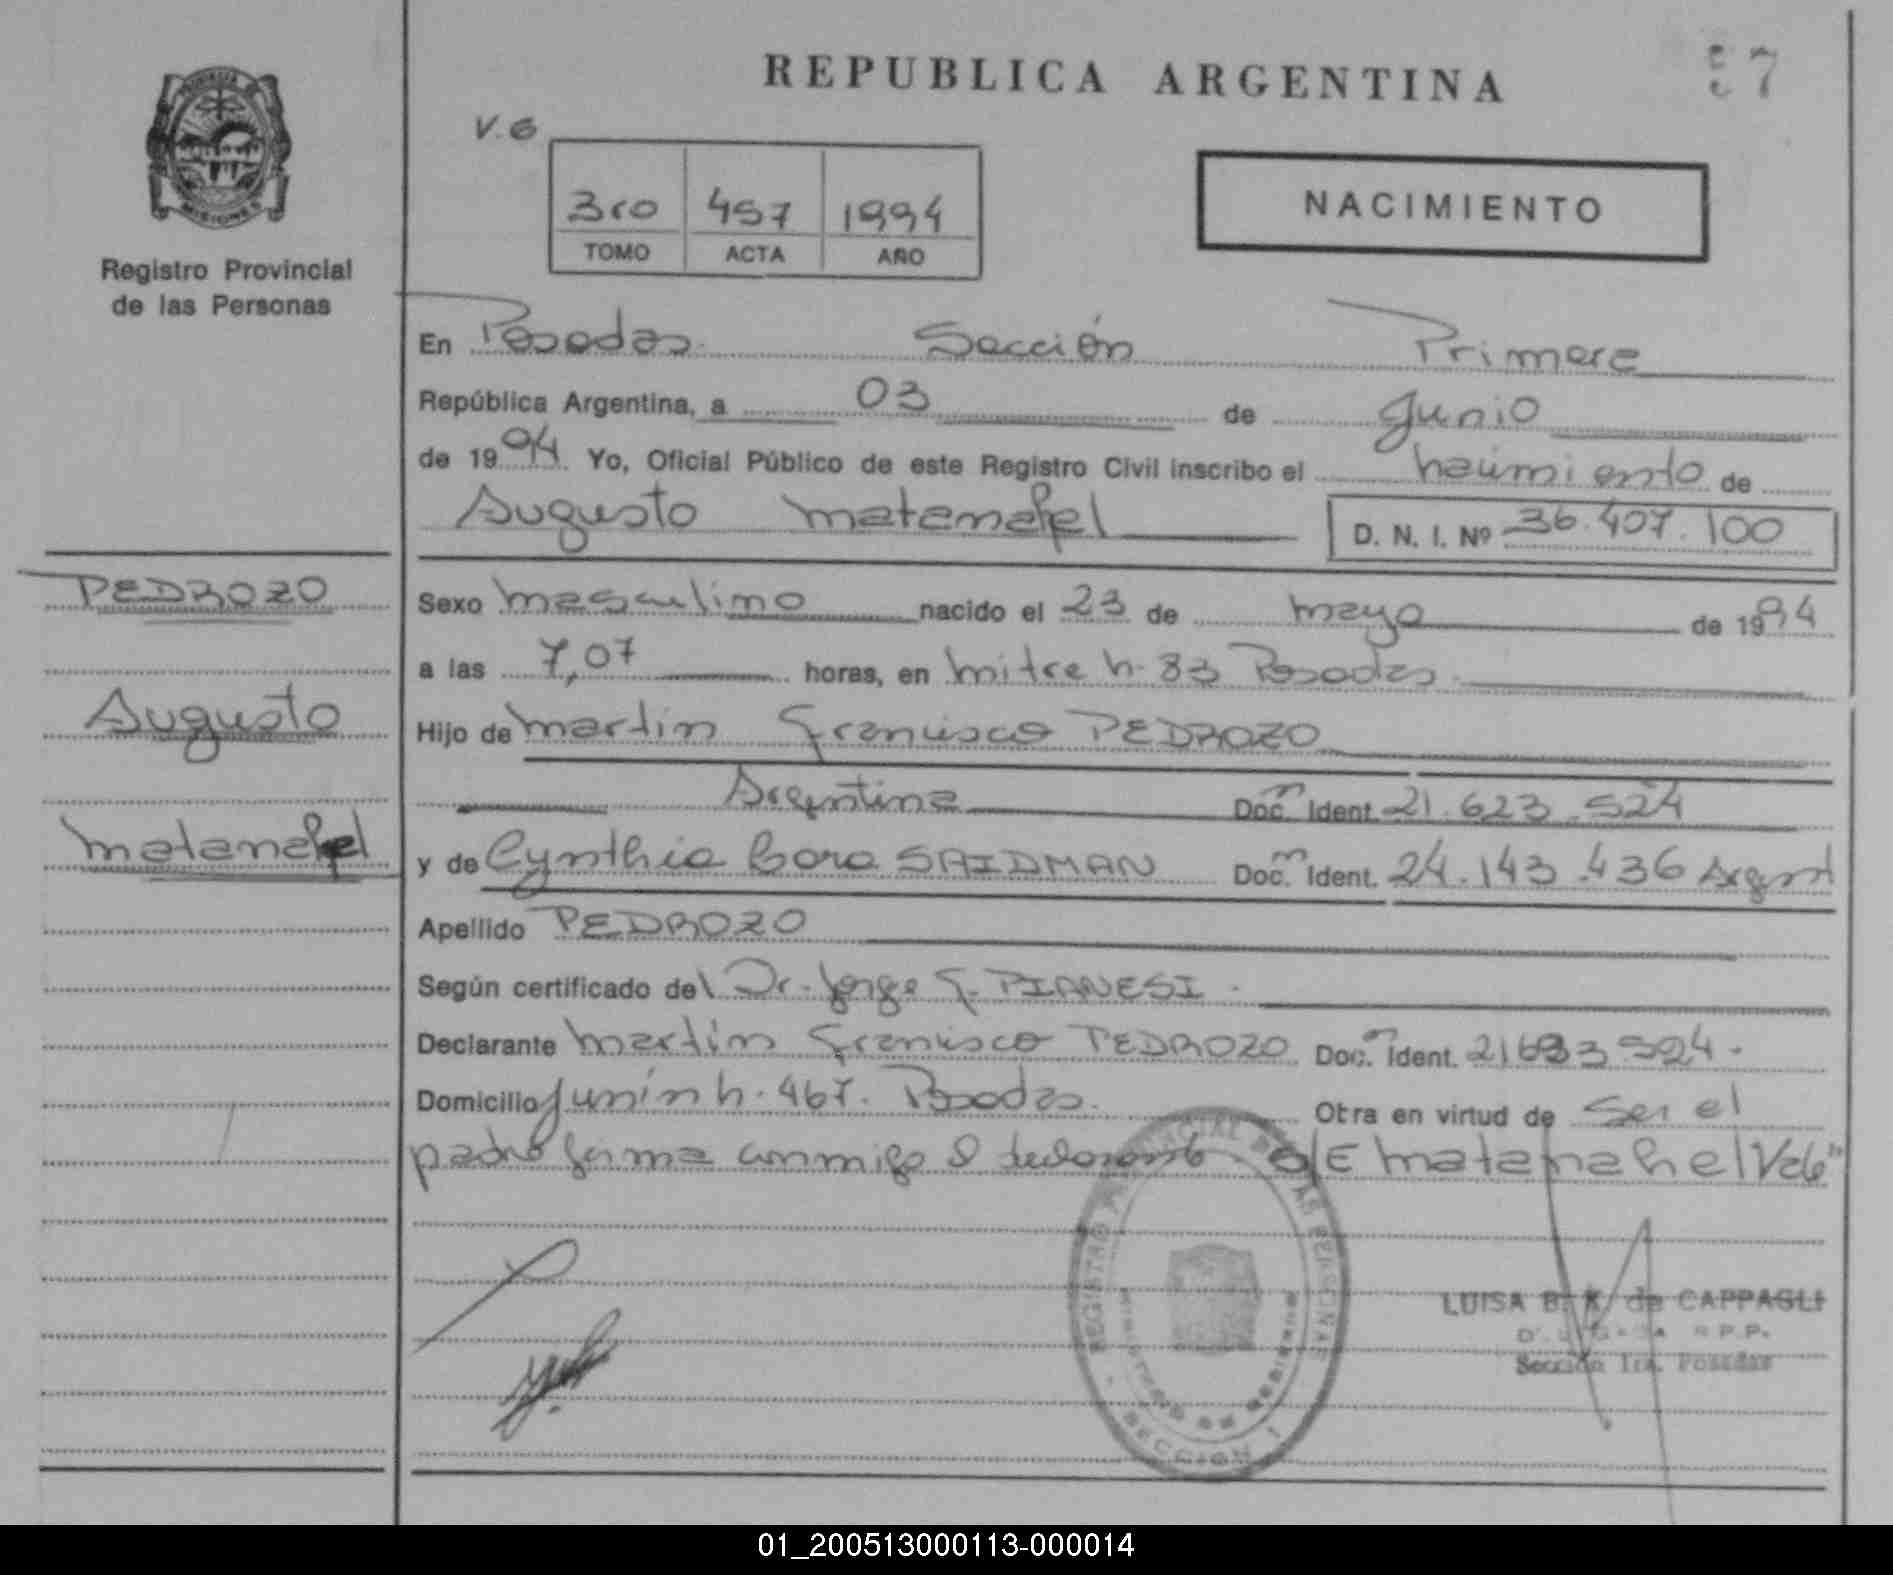 REPUBLICA ARGENTINA
7
V.6
3ro 457 1994
TOMO ACTA AÑO
NACIMIENTO
MISIONES
Registro Provincial
de las Personas
En Posadas Sección Primera
República Argentina, a 03 de Junio
de 1994 Yo, Oficial Público de este Registro Civil inscribo el nacimiento de
Augusto Matanahel
D. N. I. Nº 36.407.100
PEDROZO
Augusto
Matanahel
Sexo masculino nacido el 23 de mayo de 1994
a las 7,07 horas, en Mitre N. 83 Posadas.
Hijo de Martín Francisco PEDROZO
Argentina Doc. Ident. 21.623.524
y de Cynthia SAIDMAN Doc. Ident. 24.143.436 Argent
Apellido PEDROZO
Según certificado del Dr. Jorge PIANESI.
Declarante Martín Francisco PEDROZO Doc. Ident.
Domicilio Junín N. 467. Posadas. Otra en virtud de Ser el
padre firma conmigo el declarante. O/E Matanahel Vale"
REGISTRO PROVINCIAL DE LAS PERSONAS
MINISTERIO DE GOBIERNO
SECCION 1
LUISA B. K. de CAPPAGLI
R.P.P.
Sección 1ra. Posadas
01_200513000113-000014